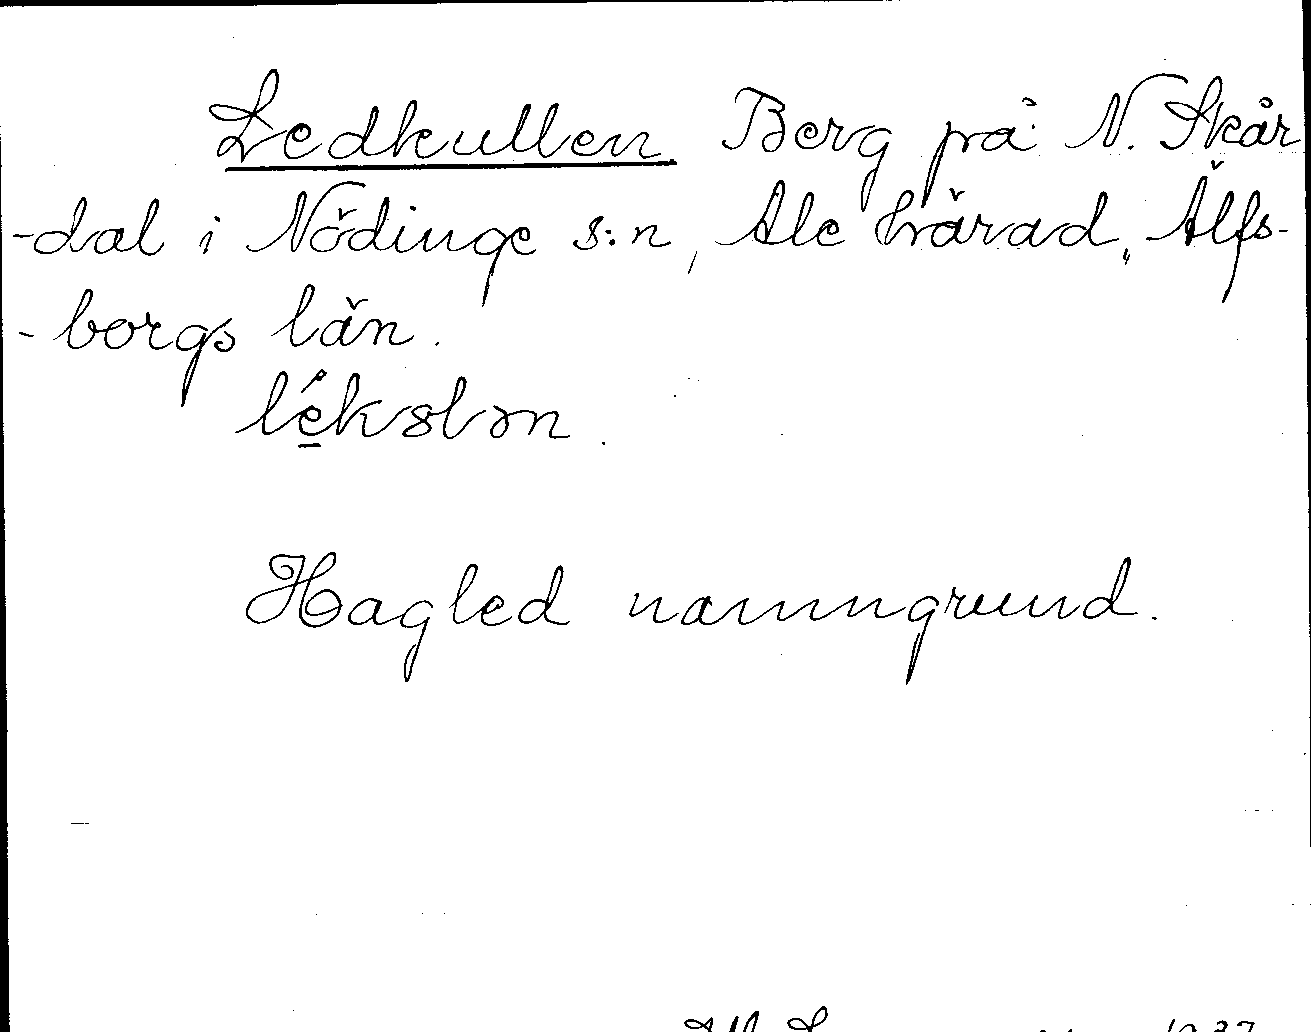 Ledkullen Berg på N. Skår
-dal i Nödinge s:n, Ale härad, Älfs-
-borgs län.
lékslən.
Hagled namngrund.